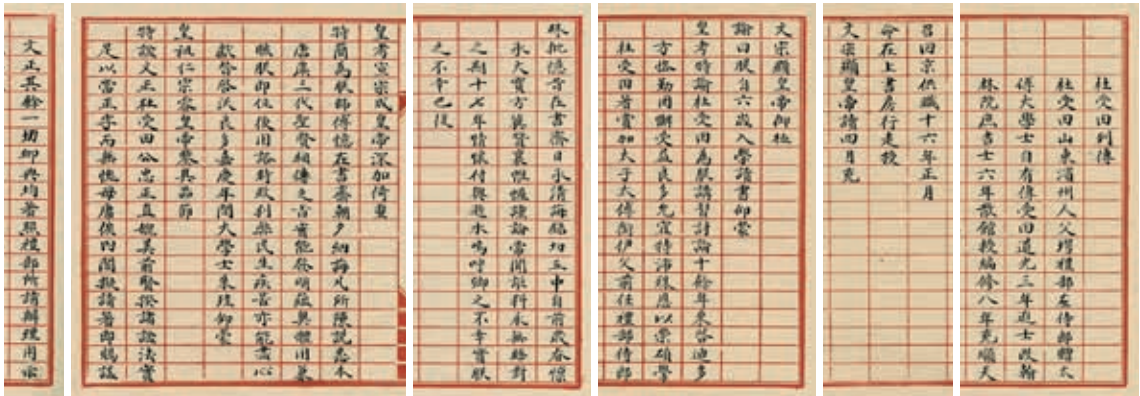 杜受田列傳
杜受田山東濱州人父堮禮部左侍郎贈太
傅大學士自有傳受田道光三年進士改翰
林院庶吉士六年散館授編修八年充順天
召回京供職十六年正月
命在上書房行走授
文宗顯皇帝讀四月充
文宗顯皇帝御極
諭曰朕自六歲入學讀書仰蒙
皇考特諭杜受田為朕講習討論十餘年來啓迪多
方恪勤罔懈受益良多允宜特沛殊恩以崇碩學
杜受田著賞加太子太傅銜伊父前任禮部侍郎
硃批憶昔在書齋日承清誨銘切五中自前歲春懍
承大寶方冀
之剛十七年情懷付與逝水嗚呼卿之不幸實朕
之不幸也後
皇考宣宗成皇帝深加倚重
特簡為朕師傅憶在書齋朝夕納誨凡所陳說悉本
唐虞二代聖賢相傳之旨實能發明蘊奧體用兼
賅朕即位後周諮時政利弊民生疾苦亦能盡心
獻替啓沃良多嘉慶年間大學士朱珪仰蒙
皇祖仁宗睿皇帝鑒其品節
特諡文正杜受田公忠正直媲美前賢揆諸諡法實
足以當正字而無愧毋庸俟內閣擬請著即賜諡
文正其餘一切卹典均著照禮部所請辦理用示